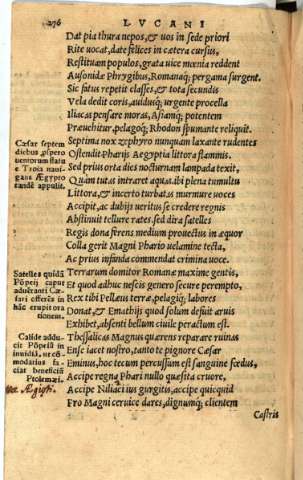 276 LVCANI
Dat pia thura nepos, & uos in sede priori
Rite uocat, date felices in cætera cursus,
Restituam populos, grata uice mœnia reddent
Ausonidæ Phrygibus, Romanaq; pergama surgent.
Sic fatus repetit classes, & tota secundis
Vela dedit coris, auidusq; urgente procella
Iliacas pensare moras, Asiamq; potentem
Præuehitur, pelagoq; Rhodon spumante reliquit.
Septima nox zephyro nunquam laxante rudentes
Ostendit Pharijs Aegyptia littora flammis.
Sed prius orta dies nocturnam lampada texit,
Quàm tutas intraret aquas. ibi plena tumultu
Littora, & incerto turbatas murmure uoces
Accipit, ac dubijs ueritus se credere regnis
Abstinuit tellure rates. sed dira satelles
Regis dona ferens medium prouectus in æquor
Colla gerit Magni Phario uelamine tecta,
Ac prius infanda commendat crimina uoce.
Terrarum domitor Romanæ maxime gentis,
Et quod adhuc nescis genero secure perempto,
Rex tibi Pellæus terræ, pelagiq; labores
Donat, & Emathijs quod solum defuit armis
Exhibet, absenti bellum ciuile peractum est.
Thessalicas Magnus quærens reparare ruinas
Ense iacet nostro, tanto te pignore Cæsar
Emimus, hoc tecum percussum est sanguine fœdus,
Accipe regna Phari nullo quæsita cruore,
Accipe Niliaci ius gurgitis, accipe quicquid
Pro Magni ceruice dares, dignumq; clientem
Castris
Cæsar septem
diebus, pspero
uentorum flatu
e Troia naui-
gans Ægypto
tandē appulit.
Satelles quidā
Pōpeij caput
aduectanti Cæ-
sari offerēs in
hāc erupit ora
tionem.
Callide addu-
cit Pōpeiū in
inuidiā, ut cō-
modarius fa-
ciat beneficiū
Ptolemæi.